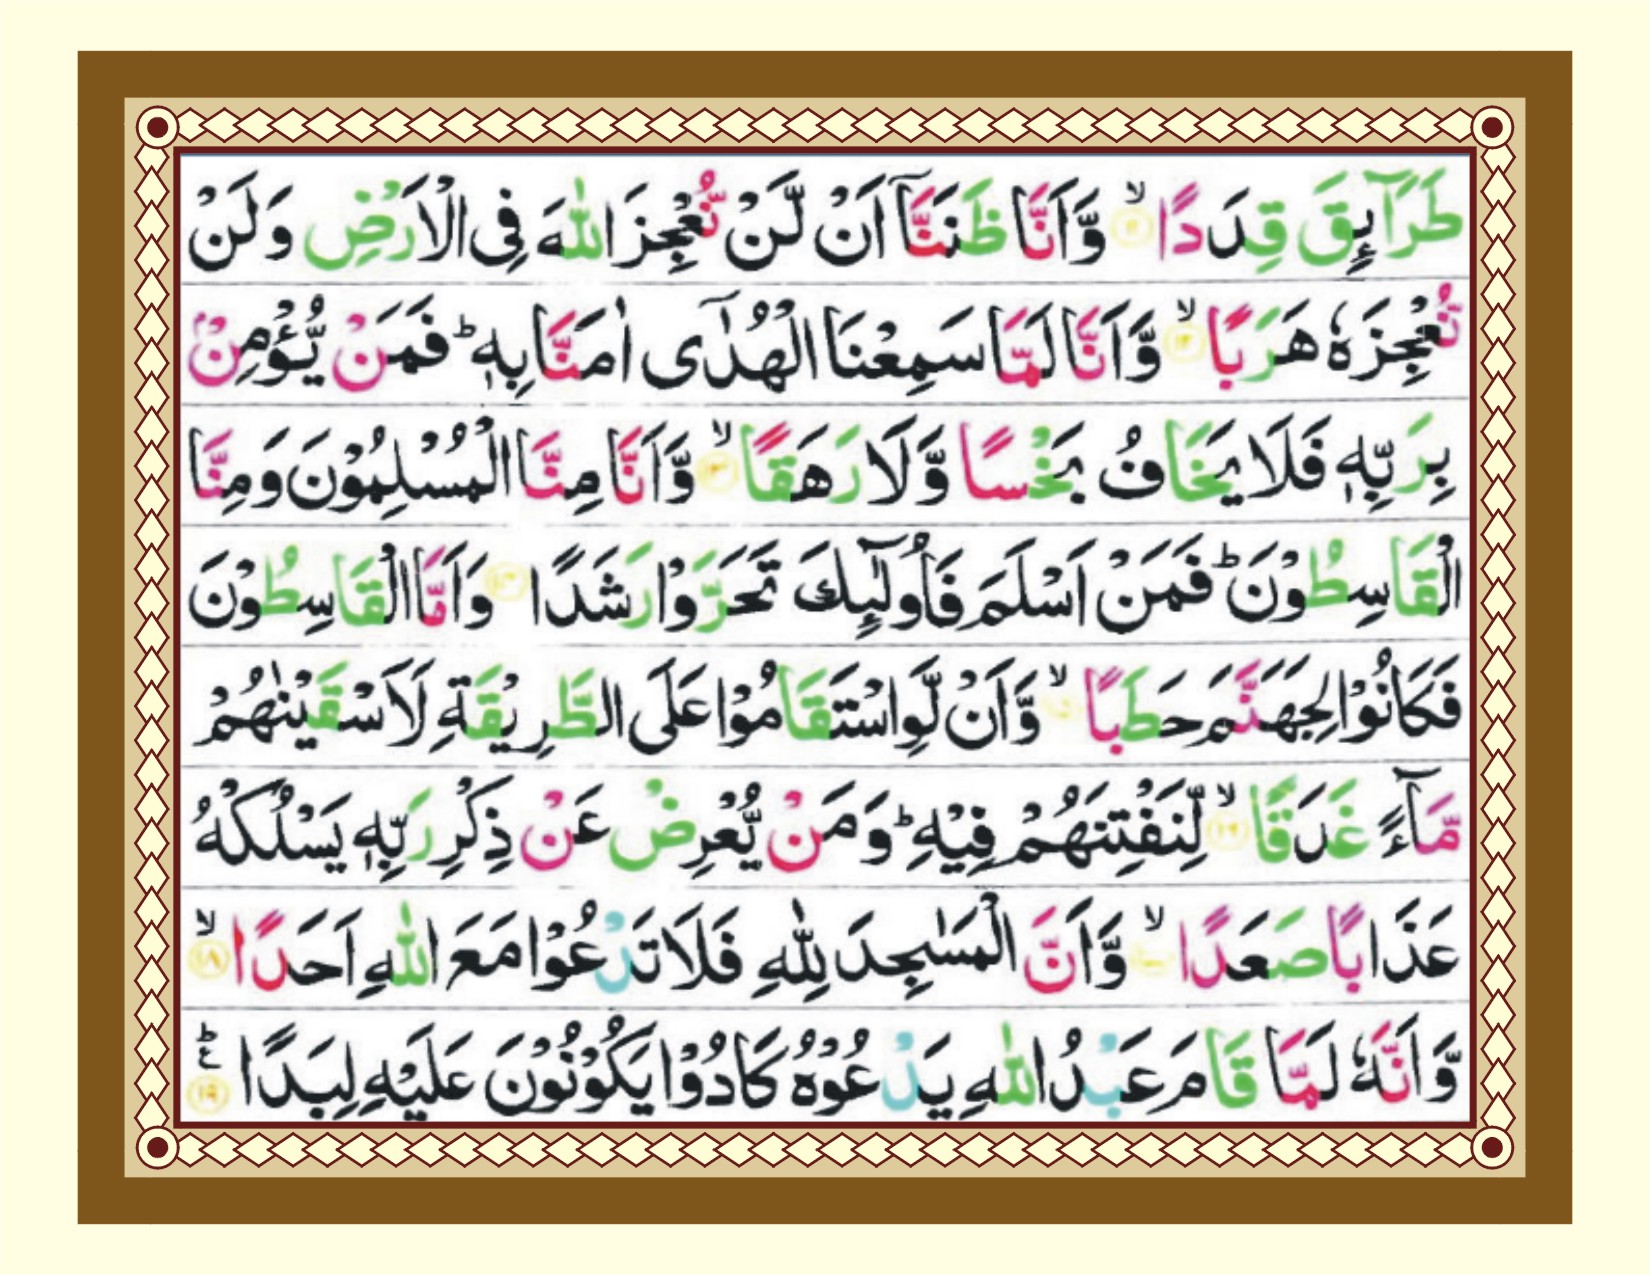 طَرَآئِقَ قِدَدًا ۙ﴿۱۱﴾ وَّاَنَّا ظَنَنَّآ اَنْ لَّنْ نُّعْجِزَ اللّٰهَ فِى الْاَرْضِ وَلَنْ
نُّعْجِزَهٗ هَرَبًا ۙ﴿۱۲﴾ وَّاَنَّا لَمَّا سَمِعْنَا الْهُدٰٓى اٰمَنَّا بِهٖ ؕ فَمَنْ يُّؤْمِنْۢ
بِرَبِّهٖ فَلَا يَخَافُ بَخْسًا وَّلَا رَهَقًا ۙ﴿۱۳﴾ وَّاَنَّا مِنَّا الْمُسْلِمُوْنَ وَمِنَّا
الْقَاسِطُوْنَ ؕ فَمَنْ اَسْلَمَ فَاُولٰٓئِكَ تَحَرَّوْا رَشَدًا ﴿۱۴﴾ وَاَمَّا الْقَاسِطُوْنَ
فَكَانُوْا لِجَهَنَّمَ حَطَبًا ۙ﴿۱۵﴾ وَّاَنْ لَّوِاسْتَقَامُوْا عَلَى الطَّرِيْقَةِ لَاَسْقَيْنٰهُمْ
مَّآءً غَدَقًا ۙ﴿۱۶﴾ لِّنَفْتِنَهُمْ فِيْهِ ؕ وَمَنْ يُّعْرِضْ عَنْ ذِكْرِ رَبِّهٖ يَسْلُكْهُ
عَذَابًا صَعَدًا ۙ﴿۱۷﴾ وَّاَنَّ الْمَسٰجِدَ لِلّٰهِ فَلَا تَدْعُوْا مَعَ اللّٰهِ اَحَدًا ۙ﴿۱۸﴾
وَّاَنَّهٗ لَمَّا قَامَ عَبْدُ اللّٰهِ يَدْعُوْهُ كَادُوْا يَكُوْنُوْنَ عَلَيْهِ لِبَدًا ؕع ﴿۱۹﴾